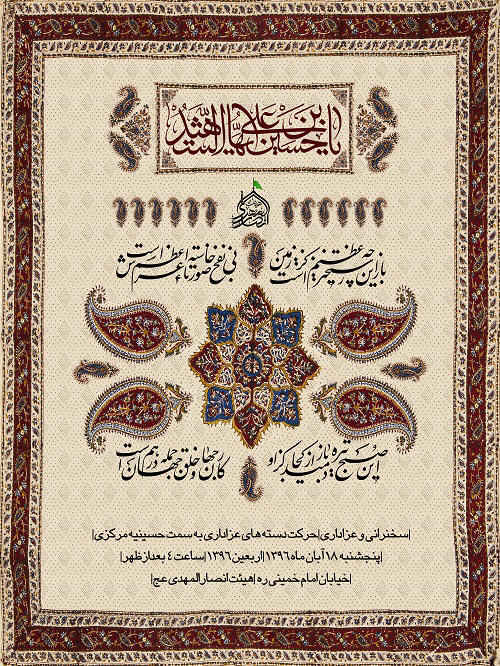 یا حسین بن علی ایها الشهید
باز این چه رستخیز عظیم است کز زمین
بی نفخ صور خاسته تا عرش اعظم است
این صبح تیره باز دمید از کجا کزو
کار جهان و خلق جهان جمله درهم است
|سخنرانی و عزاداری|حرکت دسته های عزاداری به سمت حسینیه مرکزی|
|پنجشنبه ۱۸ آبان ماه ۱۳۹۶|اربعین ۱۳۹۶|ساعت ٤ بعد از ظهر|
|خیابان امام خمینی ره |هیئت انصار المهدی عج|